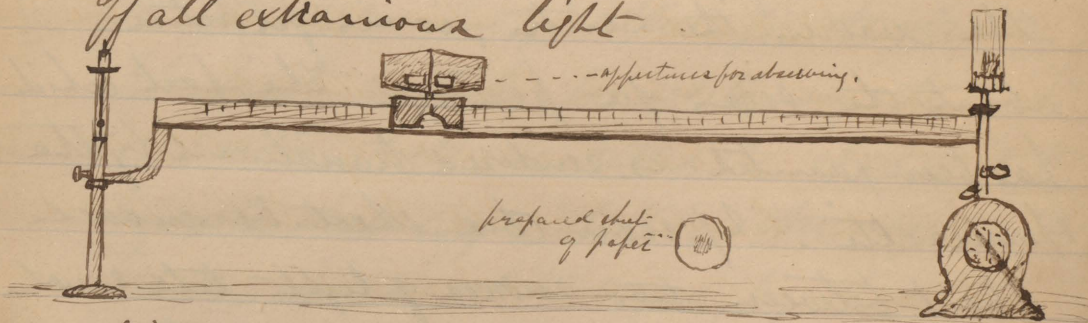 of all extranious light
appertures for observing.
prepared sheet
of paper